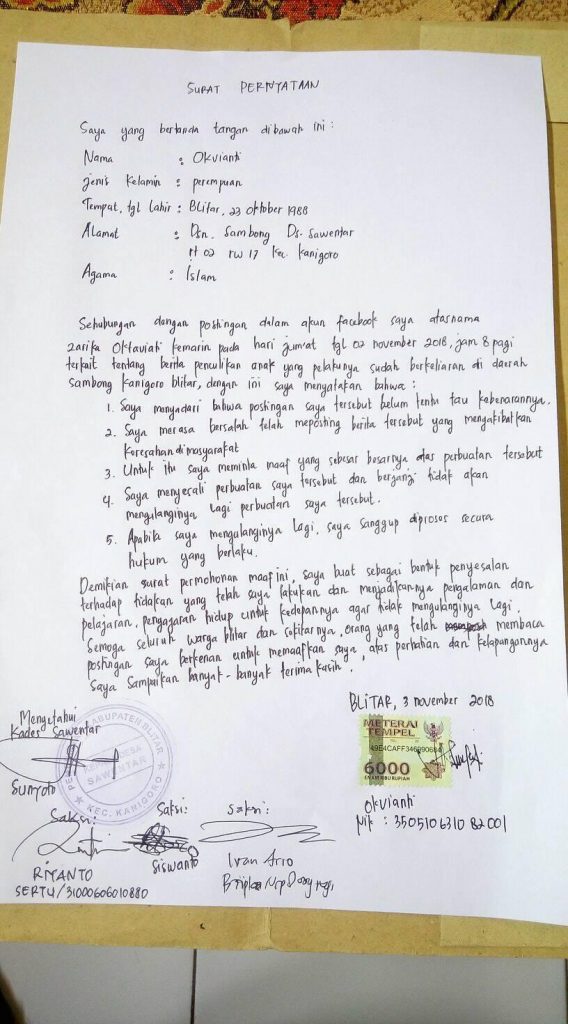 SURAT PERNYATAAN
Saya yang bertanda tangan dibawah ini :
Nama : Okvianti
Jenis Kelamin : perempuan
Tempat, tgl lahir : Blitar, 23 Oktober 1988
Alamat : Dsn. Sambong Ds. Sawentar
rt 02 rw 17 Kec. Kanigoro
Agama : Islam
Sehubungan dengan postingan dalam akun facebook saya atasnama
zarika Oktaviati kemarin pada hari jum'at tgl 02 november 2018, jam 8 pagi
terkait tentang berita penculikan anak yang pelakunya sudah berkeliaran di daerah
Sambong Kanigoro blitar, dengan ini saya menyatakan bahwa :
1. Saya menyadari bahwa postingan saya tersebut belum tentu tau kebenarannya.
2. Saya merasa bersalah telah meposting berita tersebut yang mengakibatkan
Keresahan dimasyarakat
3. Untuk itu saya meminta maaf yang sebesar besarnya atas perbuatan tersebut
4. Saya menyesali perbuatan saya tersebut dan berjanji tidak akan
mengulanginya lagi perbuatan saya tersebut.
5. Apabila saya mengulanginya lagi, saya sanggup diproses secara
hukum yang berlaku.
Demikian surat permohonan maaf ini, saya buat sebagai bentuk penyesalan
terhadap tidakan yang telah saya lakukan dan menjadikannya pengalaman dan
pelajaran, pengajaran hidup untuk kedepannya agar tidak mengulanginya lagi.
Semoga seluruh warga blitar dan sekitarnya, orang yang telah membaca
postingan saya berkenan untuk memaafkan saya, atas perhatian dan kelapangannya
Saya sampaikan banyak-banyak terima kasih.
BLITAR, 3 november 2018
Mengetahui
Kades Sawentar
KABUPATEN BLITAR
SAWENTAR
KEC. KANIGORO
Sunyoto
METERAI
TEMPEL
6000
ENAM RIBU RUPIAH
Okvianti
Nik : 3505106310 82001
Saksi:
Saksi:
Saksi:
RIYANTO
SERTU/31000606010880
Siswanto
Ivan Ario